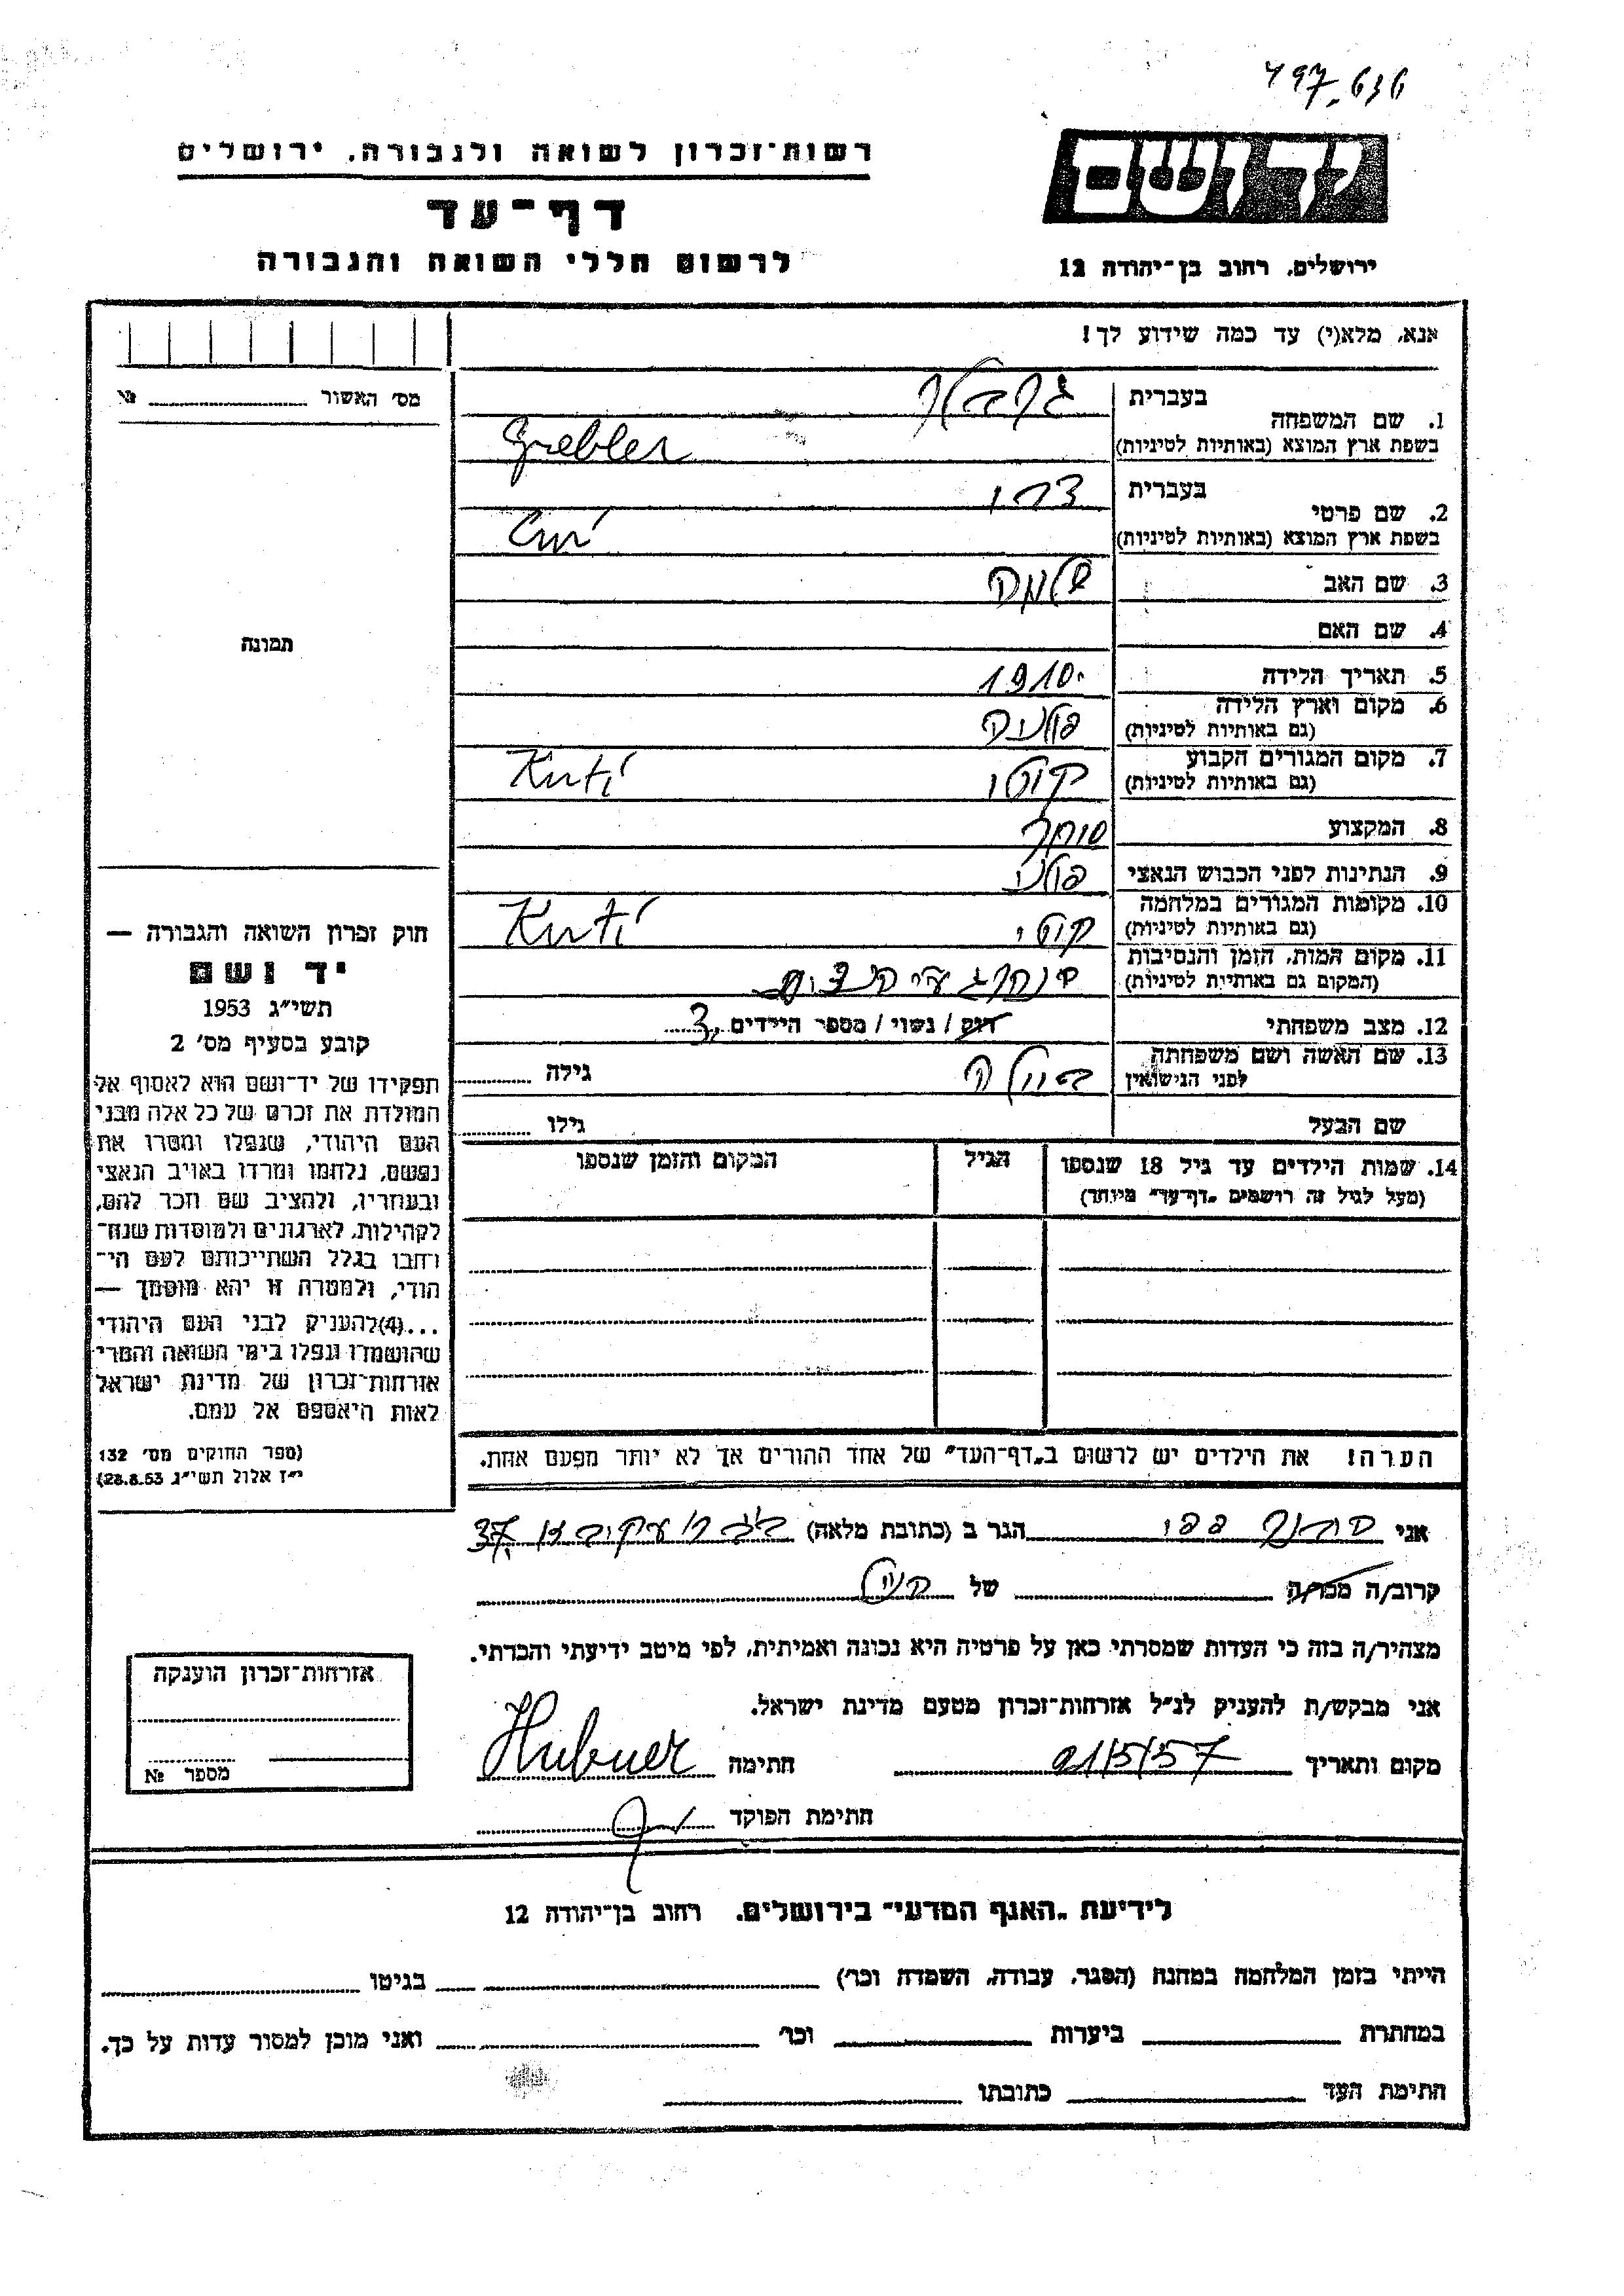 497.636
רשות־זכרון לשואה ולגבורה, ירושלים
דף־עד
לרשום חללי השואה והגבורה
יד ושם
ירושלים, רחוב בן־יהודה 12
אנא, מלא(י) עד כמה שידוע לך!
מס' האשור № 
תמונה
1. שם המשפחה
בעברית
בשפת ארץ המוצא (באותיות לטיניות) Grebler
2. שם פרטי
בעברית
בשפת ארץ המוצא (באותיות לטיניות)
3. שם האב שלמה
4. שם האם
5. תאריך הלידה 1910
6. מקום וארץ הלידה
(גם באותיות לטיניות)
7. מקום המגורים הקבוע קוטי Kuti
(גם באותיות לטיניות)
8. המקצוע סוחר
9. הנתינות לפני הכבוש הנאצי
10. מקומות המגורים במלחמה קוטי Kuti
(גם באותיות לטיניות)
11. מקום המות, הזמן והנסיבות
(המקום גם באותיות לטיניות)
12. מצב משפחתי רוק / נשוי / מספר הילדים 3
13. שם האשה ושם משפחתה
לפני הנישואין
גילה
שם הבעל גילו
14. שמות הילדים עד גיל 18 שנספו
(מעל לגיל זה רושמים "דף־עד" מיוחד)
הגיל
המקום והזמן שנספו
הערה! את הילדים יש לרשום ב"דף־העד" של אחד ההורים אך לא יותר מפעם אחת.
חוק זכרון השואה והגבורה —
יד ושם
תשי"ג 1953
קובע בסעיף מס' 2
תפקידו של יד־ושם הוא לאסוף אל
המולדת את זכרם של כל אלה מבני
העם היהודי, שנפלו ומסרו את
נפשם, נלחמו ומרדו באויב הנאצי
ובעוזריו, ולהציב שם וזכר להם,
לקהילות, לארגונים ולמוסדות שנח־
רחבו בגלל השתייכותם לעם הי־
הודי, ולמטרה זו יהא מוסמך —
...(4)להעניק לבני העם היהודי
שהושמדו ונפלו בימי השואה והמרי
אזרחות־זכרון של מדינת ישראל
לאות היאספם אל עמם.
(ספר החוקים מס' 132
י"ז אלול תשי"ג 28.8.53)
אני הגר ב (כתובת מלאה) 37
קרוב/ה מכר/ה של
מצהיר/ה בזה כי העדות שמסרתי כאן על פרטיה היא נכונה ואמיתית, לפי מיטב ידיעתי והכרתי.
אני מבקש/ת להעניק לנ"ל אזרחות־זכרון מטעם מדינת ישראל.
מקום ותאריך 21/5/57 חתימה Hubner
חתימת הפוקד
אזרחות־זכרון הוענקה
מספר №
לידיעת "האגף המדעי" בירושלים, רחוב בן־יהודה 12
הייתי בזמן המלחמה במחנה (הסגר, עבודה, השמדה וכו') בגיטו
במחתרת ביערות וכו' ואני מוכן למסור עדות על כך.
חתימת העד כתובתו